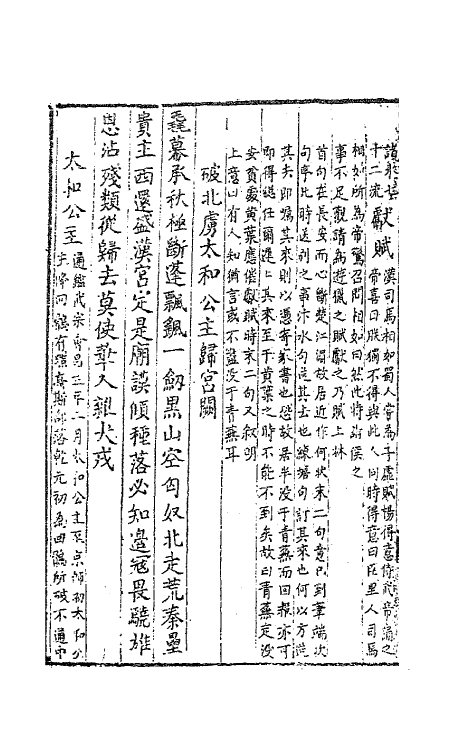 獻賦 漢司馬相如蜀人嘗為子虛賦楊得意侍武帝讀之
十二流 帝喜曰朕獨不得與此人同時得意曰臣里人司馬
相如所為帝驚召問相如曰然此特諸侯之
事不足觀請為遊獵之賦獻之乃賦上林
首句在長安而心斷楚江湄故居近作何狀末二句意已到筆端次
句序此時送別之事汴水句從其去也練塘句訂其來也何以方送
其去即為其來則以憑寄來書也恐故居半没于青蕪而回報亦可
即得故任爾遷其來至于黄葉之時不能不到矣故曰青蕪定没
安貧處黄葉應催獻賦時末二句又叙明
上意曰有人知猶言或不盡没于青蕪耳
破北虜太和公主歸宮闕
毳幕承秋極斷蓬飄飄一劒黒山空匈奴北走荒秦壘
貴主西還盛漢宮定是廟謨傾種落必知邊寇畏驍雄
恩沾殘類從歸去莫使華人雜犬戎
太和公主 通鑑武宗會昌三年二月太和公主至京師初太和公
主降回鶻有黠戛斯部落乾元初為回鶻所破不通中